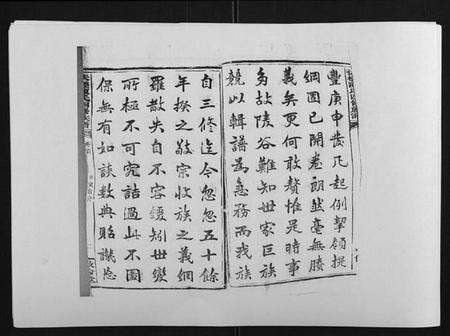 豐庚申發凡起例挈領提
綱固已開卷朗然毫無賸
義矣更何敢贅惟是時事
多故陵谷難知世家巨族
競以輯譜為急務而我族
自三修迄今忽忽五十餘
年揆之敬宗收族之義網
羅散失自不容緩矧世變
所極不可究詰過此不圖
保無有如談數典貽譏忘